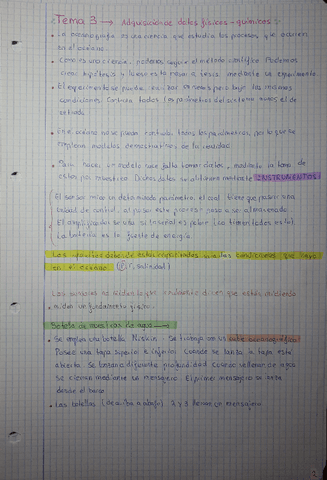 Tema 3 → Adquisición de datos físicos-químicos
• La oceanografía es una ciencia que estudia los procesos que ocurren
en el océano
• Como es una ciencia, podemos seguir el método científico. Podemos
crear hipótesis y luego esta pasa a tesis mediante un experimento
• El experimento se puede veces pero bajo las mismas
condiciones. Controlar todos los parámetros del sistema menos el de
estudio.
• En el océano no se puede controlar todos los parámetros, por lo que se
emplean modelos de la realidad
• Para hacer un modelo hace falta tomar datos, mediante la toma de
datos por muestreo. Dichos datos se obtienen mediante INSTRUMENTOS
El sensor mide un determinado parámetro, el cual tiene que pasar a una
unidad de control, al pasar este proceso pasa a ser almacenado.
El
La batería es la fuente de energía.
Los aparatos deben de estar a las condiciones que haya
en el océano (P, T, salinidad)
Los sensores no miden lo que dicen que están midiendo
miden un fundamento físico.
Botella de muestreo de agua →
• Se emplea una botella Niskin. Se trabaja con un cable oceanográfico
Posee una tapa superior e inferior. Cuando se lanza la tapa está
abierta. Se lanzan a diferente profundidad. Cuando se llenan de agua
se cierran mediante un mensajero. El primer mensajero se lanza
desde el barco.
• Las botellas (de arriba a abajo) 2 y 3 llevan un mensajero